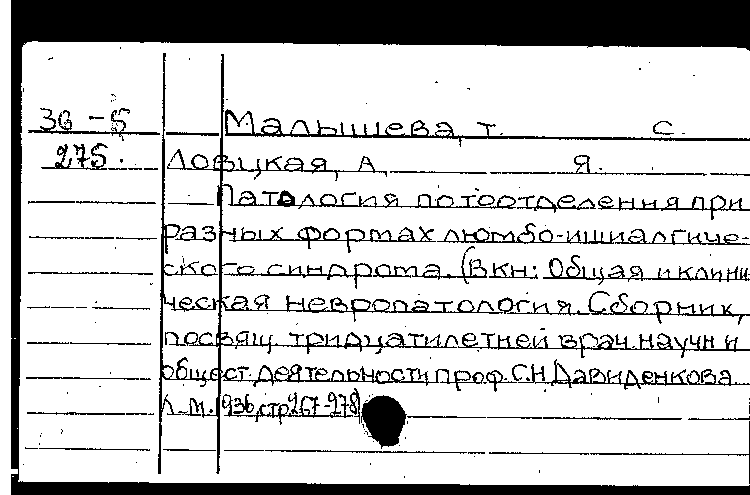 36-5 Малышева, Т. С.
275. Ловцкая, А. Я.
Патология потоотделения при
разных формах люмбо-ишиалгиче-
ского синдрома. (В кн: Общая и клини
ческая невропатология. Сборник,
посвящ. тридцатилетней врач. научн и
общест. деятельности проф. С.Н. Давиденкова
Л-М. 1936, стр 267-278)